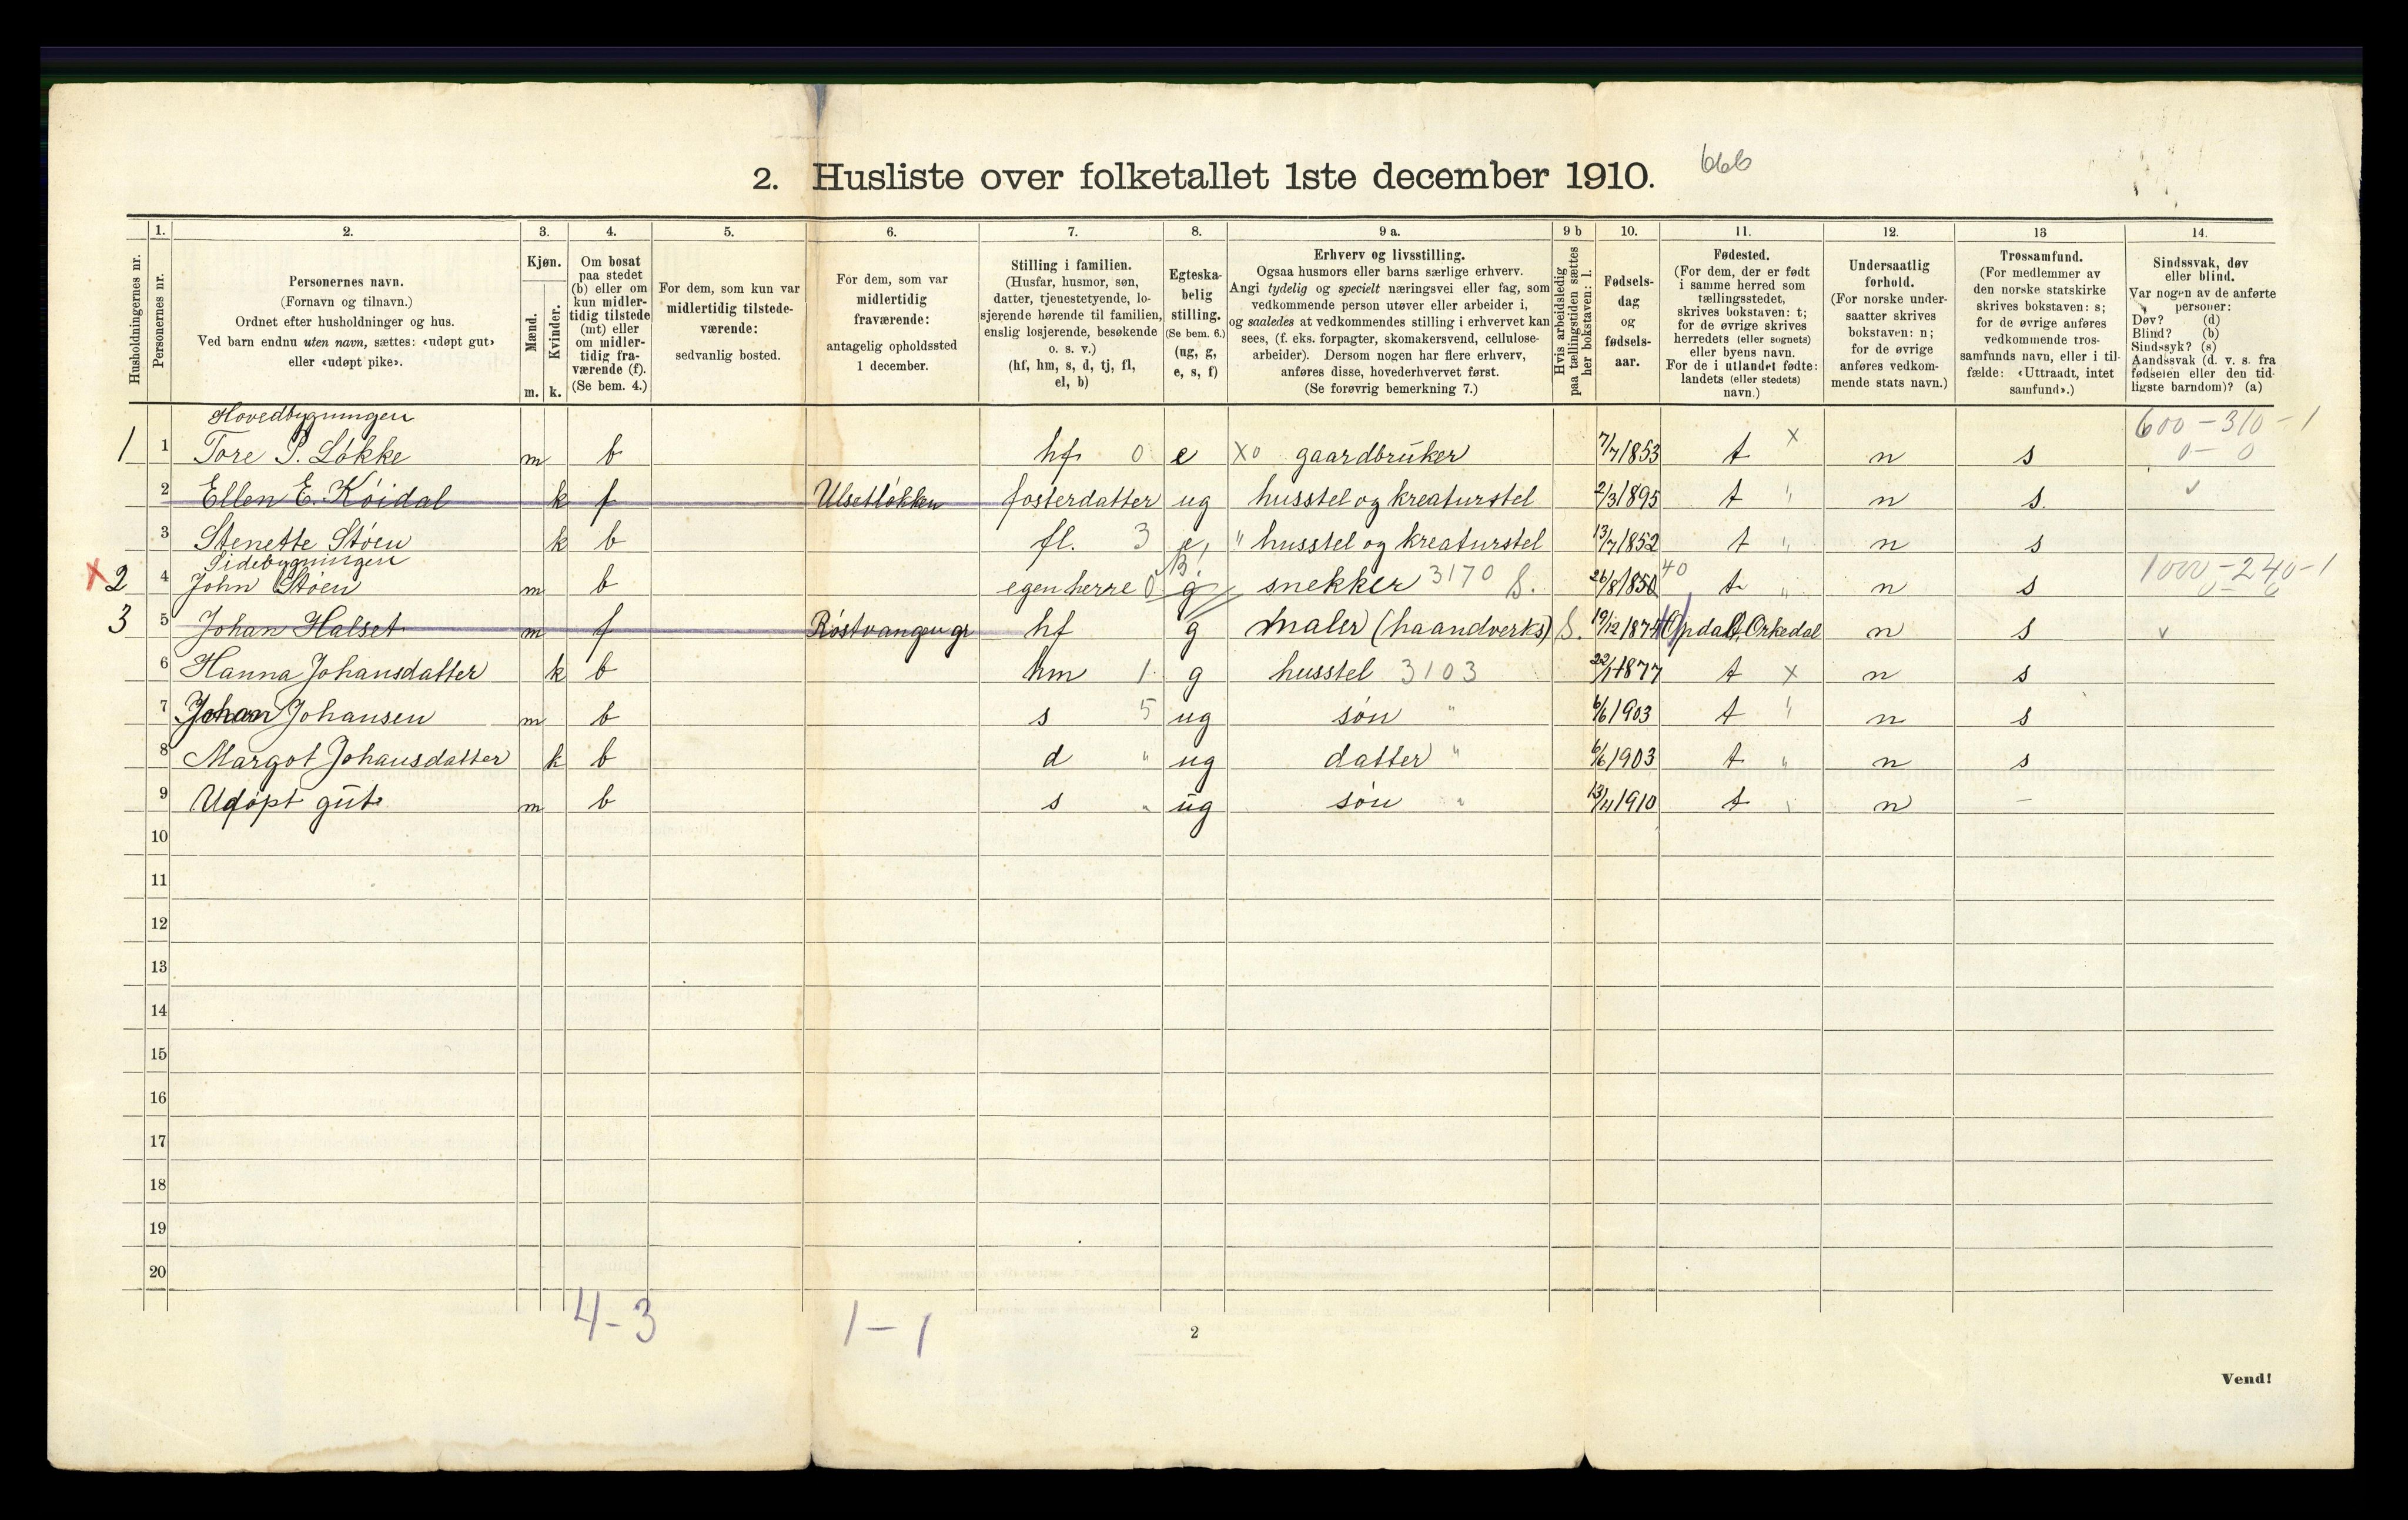 2. Husliste over folketallet 1ste december 1910. 666
Husholdningernes nr.
1. Personernes nr.
2. Personernes navn. (Fornavn og tilnavn.) Ordnet efter husholdninger og hus. Ved barn endnu uten navn, sættes: «udøpt gut» eller «udøpt pike».
3. Kjøn. Mænd. m. Kvinder. k.
4. Om bosat paa stedet (b) eller om kun midlertidig tilstede (mt) eller om midlertidig fraværende (f). (Se bem. 4.)
5. For dem, som kun var midlertidig tilstedeværende: sedvanlig bosted.
6. For dem, som var midlertidig fraværende: antagelig opholdssted 1 december.
7. Stilling i familien. (Husfar, husmor, søn, datter, tjenestetyende, losjerende hørende til familien, enslig losjerende, besøkende o. s. v.) (hf, hm, s, d, tj, fl, el, b)
8. Egteskabelig stilling. (Se bem. 6.) (ug, g, e, s, f)
9 a. Erhverv og livsstilling. Ogsaa husmors eller barns særlige erhverv. Angi tydelig og specielt næringsvei eller fag, som vedkommende person utøver eller arbeider i, og saaledes at vedkommendes stilling i erhvervet kan sees, (f. eks. forpagter, skomakersvend, cellulosearbeider). Dersom nogen har flere erhverv, anføres disse, hovederhvervet først. (Se forøvrig bemerkning 7.)
9 b Hvis arbeidsledig paa tællingstiden sættes her bokstaven: l.
10. Fødselsdag og fødselsaar.
11. Fødested. (For dem, der er født i samme herred som tællingsstedet, skrives bokstaven: t; for de øvrige skrives herredets (eller sognets) eller byens navn. For de i utlandet fødte: landets (eller stedets) navn.)
12. Undersaatlig forhold. (For norske undersaatter skrives bokstaven: n; for de øvrige anføres vedkommende stats navn.)
13 Trossamfund. (For medlemmer av den norske statskirke skrives bokstaven: s; for de øvrige anføres vedkommende trossamfunds navn, eller i tilfælde: «Uttraadt, intet samfund».)
14. Sindssvak, døv eller blind. Var nogen av de anførte personer: Døv? (d) Blind? (b) Sindssyk? (s) Aandssvak (d. v. s. fra fødselen eller den tidligste barndom)? (a)
Hovedbygningen
1 1 Tore P. Løkke m b hf 0 e X0 gaardbruker 7/7 1853 t X n s 600-310-1 0-0
2 Ellen E. Køidal k f Ulsetløkken fosterdatter ug husstel og kreaturstel 2/3 1895 t " n s. v
3 Stenette Støen k b fl. 3 e, " husstel og kreaturstel 13/7 1852 t " n s
Sidebygningen
X 2 4 John Støen m b egen herre 0 g snekker 3170 S. 26/8 1850 40 t " n s 1000-240-1
3 5 Johan Halset m f Røstvangen gr hf g maler (haandverks) S. 19/12 1874 Opdal, Orkedal n s v
6 Hanna Johansdatter k b hm 1 g husstel 3103 22/1 1877 t X n s
7 Johan Johansen m b s 5 ug søn " 6/6 1903 t " n s
8 Margot Johansdatter k b d " ug datter " 6/6 1903 t " n s
9 Udøpt gut m b s " ug søn " 13/11 1910 t " n —
10
11
12
13
14
15
16
17
18
19
20
4-3 1-1
2
Vend!